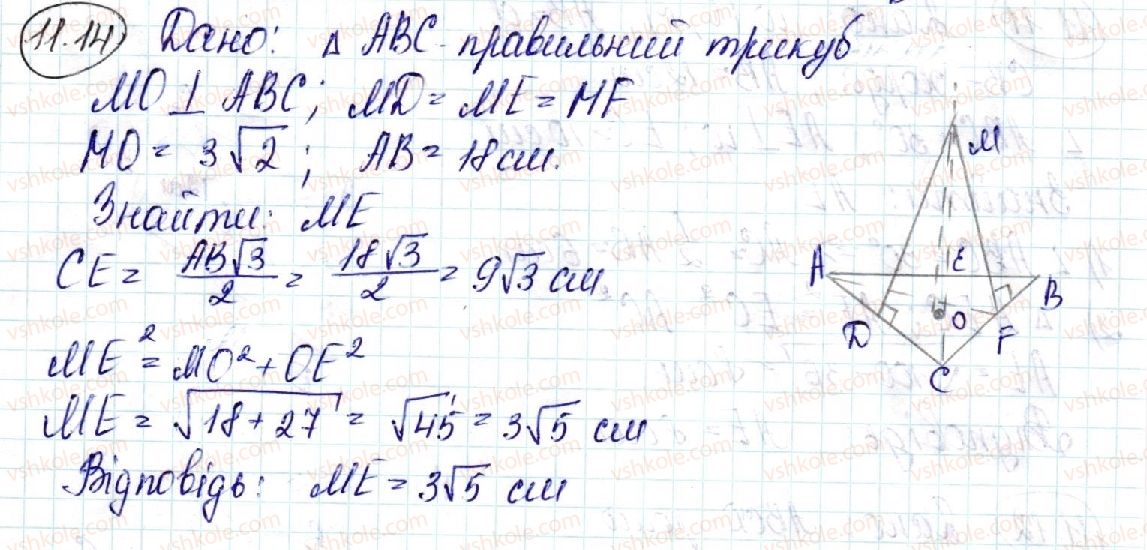 11.14 Дано: Δ ABC - правильний трикуб
MO ⊥ ABC; MD = ME = MF
MO = 3√2; AB = 18 см.
Знайти: ME
CE = AB√3/2 = 18√3/2 = 9√3 см
ME² = MO² + OE²
ME = √18 + 27 = √45 = 3√5 см
Відповідь: ME = 3√5 см
M
A E B
D O F
C
vshkole.com